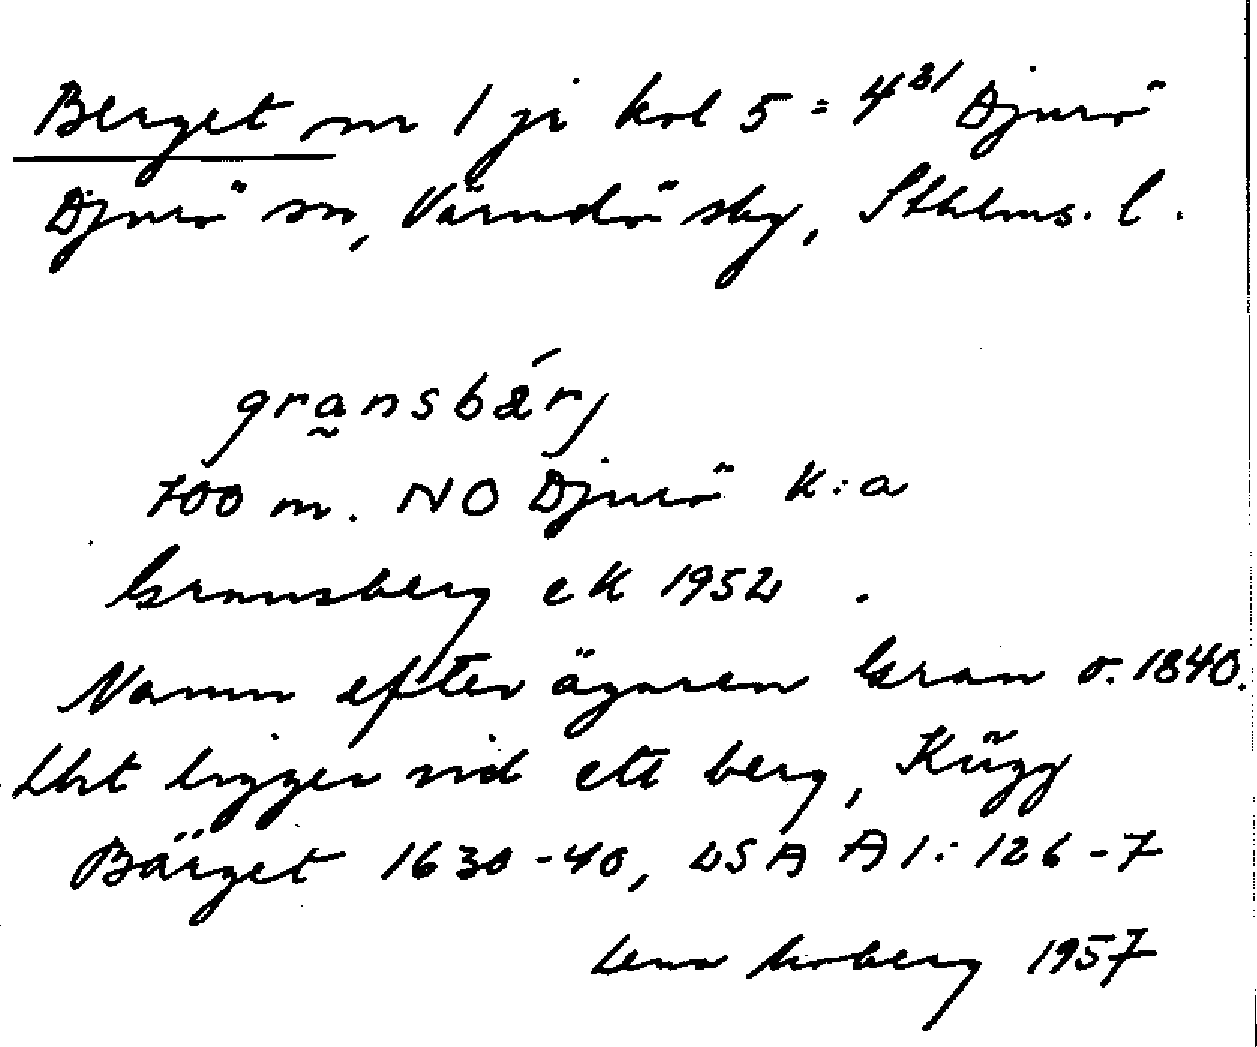 Berget nr 1 ji kol 5 = 4³¹ Djurö
Djurö sn, Värmdö skg, Sthlms. l.
gra̰nsbǽrj
700 m. NO Djurö k:a
Gransberg ek 1952.
Namn efter ägaren Gran o. 1840.
Det ligger vid ett berg,
Bärget 1630-40, LSA A 1: 126-7
Lena Moberg 1957